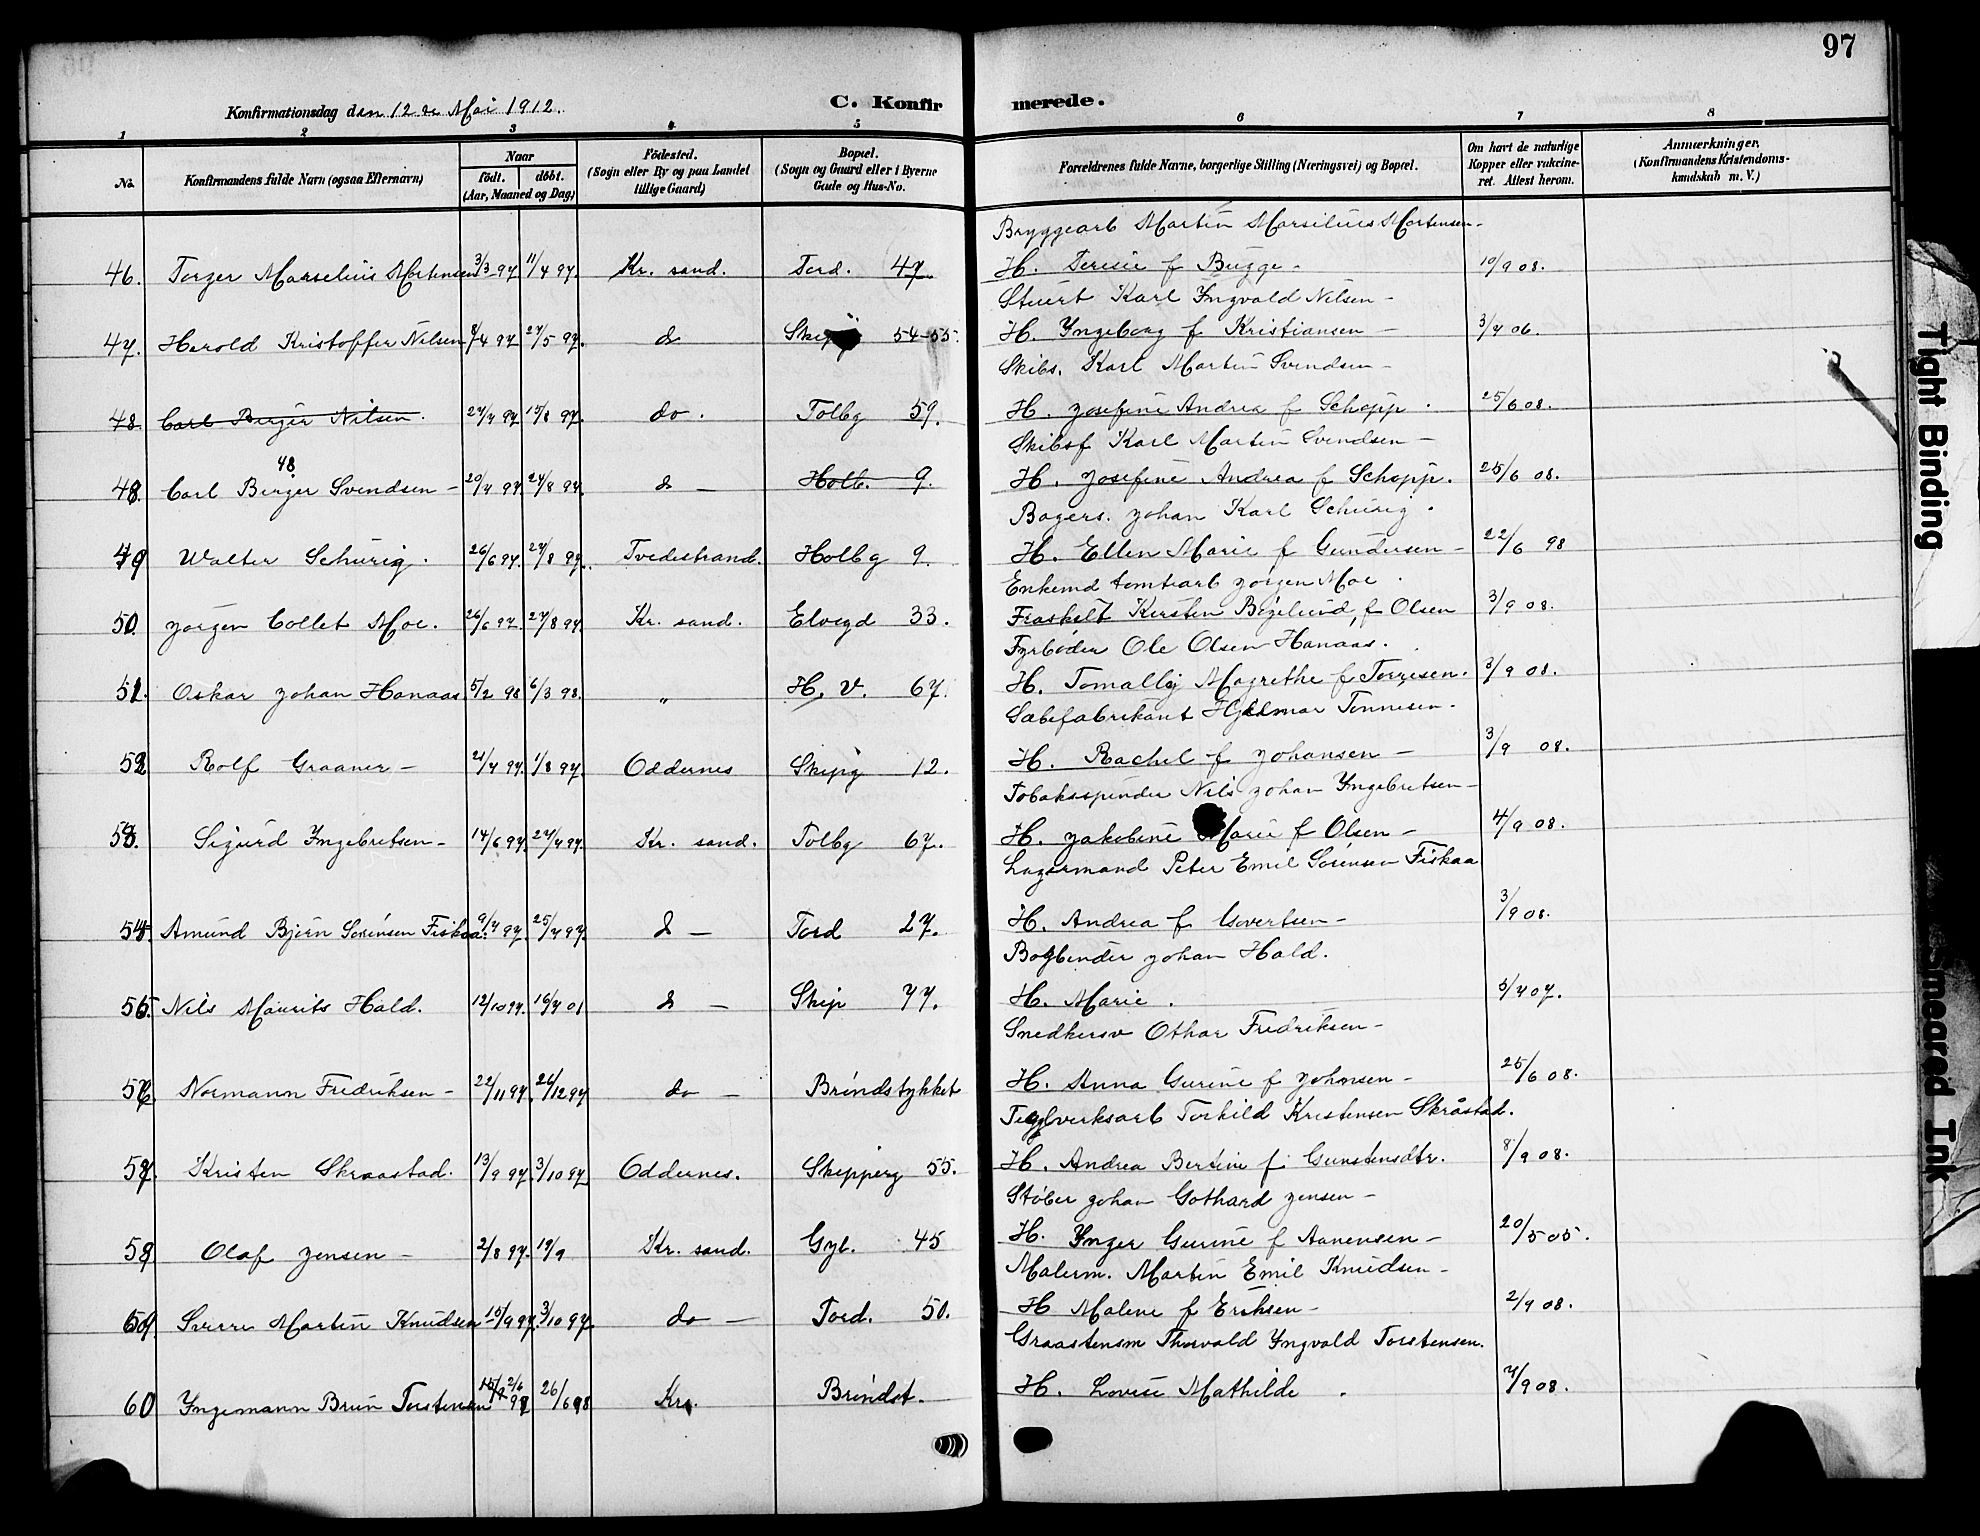 97
Konfirmationsdag den 12te Mai 1912. C. Konfirmerede.
1 2 3 4 5 6 7 8
No. Konfirmandens fulde Navn (ogsaa Efternavn) Naar født. døbt. (Aar, Maaned og Dag) Fødested. (Sogn eller By og paa Landet tillige Gaard) Bopæl. (Sogn og Gaard eller i Byerne Gade og Hus-No. Forældrenes fulde Navne, borgerlige Stilling (Næringsvei) og Bopæl. Om havt de naturlige Kopper eller vakcineret. Attest herom. Anmærkninger. (Konfirmandens Kristendomskundskab m. V.)
Bryggearb Martin Marsilius Mortensen
46. Torger Marselius Mortensen 3/3 97 11/7 97. Kr. sand. Tord. 47. H. Teresie f Bugge. 10/9 08.
Stuert Karl Yngvald Nilsen
47. Harold Kristoffer Nilsen 8/4 97 27/5 97. do Skip 54-55. H. Yngeborg f Kristiansen 3/7 06.
Skibs. Karl Martin Svendsen
48. Carl Birger Nilsen. 27/7 97 15/8 97. do. Tolbg 59. H. Josefine Andrea f Schopp. 25/6 08.
Skibsf Karl Martin Svendsen
48
48. Carl Birger Svendsen 20/7 97. 27/8 97. do Holb. 9. H. Josefine Andrea f Schopp. 25/6 08.
Bagers. Johan Karl Schurig.
49 Walter Schurig. 26/6 97. 27/8 97. Tvedestrand. Holbg 9. H. Ellen Marie f Gundersen 22/6 98
Enkemd tomtearb Jørgen Moe
50. Jørgen Collet Moe. 26/6 97. 27/8 97. Kr. sand. Elvegd 33. Fraskilt Kirsten Bigelund, f Olsen 3/9 08.
Fyrbøder Ole Olsen Hanaas.
51. Oskar Johan Hanaas 5/2 98 6/3 98. " H. V. 67. H. Tomally Magrethe f Torgesen. 3/9 08.
Sæbefabrikant Hjalmar Tønnesen.
52 Rolf Graaner 21/7 97. 1/8 97. Oddernes Skipg 12. H. Rachel f Johansen 3/9 08.
Tobaksspinder Nils Johan Yngebretsen
53. Sigurd Yngebretsen 14/6 97. 27/7 97 Kr. sand. Tolbg 67. H. Jakobine Marie f Olsen 4/9 08.
Lagermand Peter Emil Sørensen Fiskaa
54. Amund Bjørn Sørensen Fiskaa. 9/7 97. 25/7 97. do Tord 27. H. Andrea f Govertsen 3/9 08.
Bogbinder Johan Hald.
55. Nils Maurits Hald. 12/10 97. 16/7 01 do Skip 77. H. Marie. 5/7 07.
Snedkersv Othar Fredriksen
56. Normann Fredriksen 22/11 97. 26/12 97 do Brøndstykket H. Anna Gurine f Johnsen 25/6 08.
Teglverksarb Torkild Kristensen Skråstad.
57. Kristen Skraastad. 13/9 97. 3/10 97. Oddernes. Skipperg 55. H. Andrea Bertine f Gunstensdtr. 8/9 08.
Støber Johan Gothard Jensen
58 Olaf Jensen 2/8 97. 19/9 Kr. sand. Gyl. 45 H. Ynger Gurine f Aanensen 20/5 05.
Malerm. Martin Emil Knudsen
59 Sverre Martin Knudsen 15/9 97. 3/10 97. do Tord. 50. H Malene f Eriksen 2/9 08.
Graastensm Thorvald Yngvald Torstensen.
60 Yngemann Brun Torstensen 26/6 98 Kr. Brøndst. H. Lovise Mathilde. 7/9 08.
Tight Binding
Smeared Ink